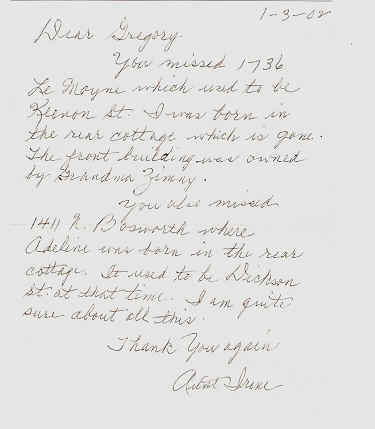 1-3-02
Dear Gregory
You missed 1736
Le Moyne which used to be
Keenon St. I was born in
the rear cottage which is gone.
The front building was owned
by Grandma Zimny.
You also missed
1411 N. Bosworth where
Adeline was born in the rear
cottage. It used to be Dickson
St. at that time. I am quite
sure about all this.
Thank You again
Aunt Irene